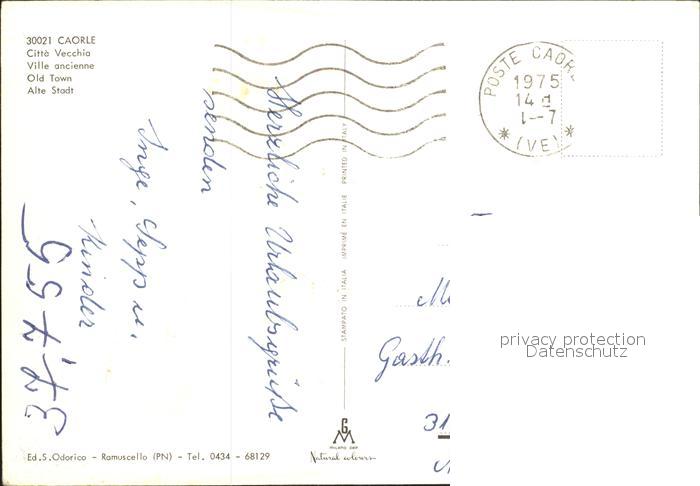 30021 CAORLE
Città Vecchia
Ville ancienne
Old Town
Alte Stadt
POSTE CAORL
1975
14
1--7
* (VE) *
Herzliche Urlaubsgrüße
senden
Inge, Sepp u.
Kinder
STAMPATO IN ITALIA IMPRIMÉ EN ITALIE PRINTED IN ITALY
Gasth.
31
privacy protection
Datenschutz
Ed.S.Odorico - Ramuscello (PN) - Tel. 0434 - 68129
Natural colours